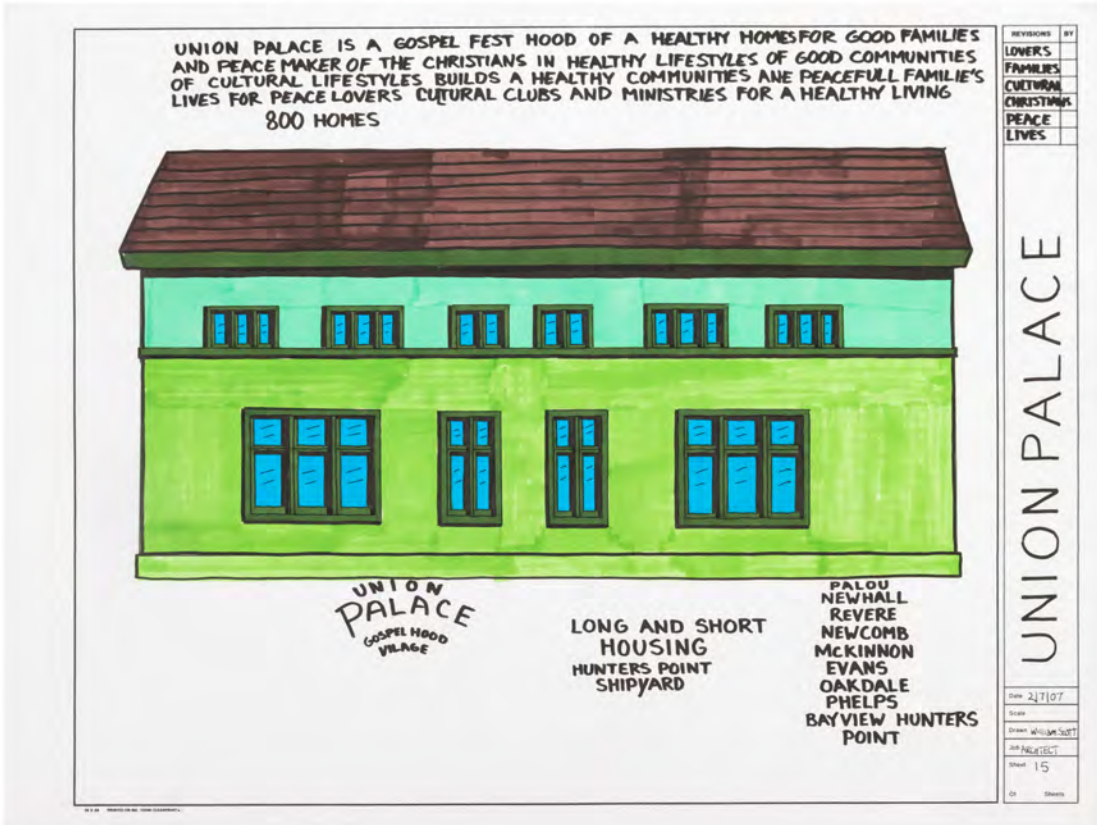 UNION PALACE IS A GOSPEL FEST HOOD OF A HEALTHY HOMES FOR GOOD FAMILIES
AND PEACE MAKER OF THE CHRISTIANS IN HEALTHY LIFESTYLES OF GOOD COMMUNITIES
OF CULTURAL LIFESTYLES BUILDS A HEALTHY COMMUNITIES ANE PEACEFULL FAMILIE'S
LIVES FOR PEACE LOVERS CUTURAL CLUBS AND MINISTRIES FOR A HEALTHY LIVING
800 HOMES
UNION
PALACE
GOSPEL HOOD
VILAGE
LONG AND SHORT
HOUSING
HUNTERS POINT
SHIPYARD
PALOU
NEWHALL
REVERE
NEWCOMB
MCKINNON
EVANS
OAKDALE
PHELPS
BAYVIEW HUNTERS
POINT
REVISIONS BY
LOVERS
FAMILIES
CULTURAL
CHRISTIANS
PEACE
LIVES
UNION PALACE
Date 2/7/07
Scale
Drawn William Scott
Job ARCHITECT
Sheet 15
Of Sheets